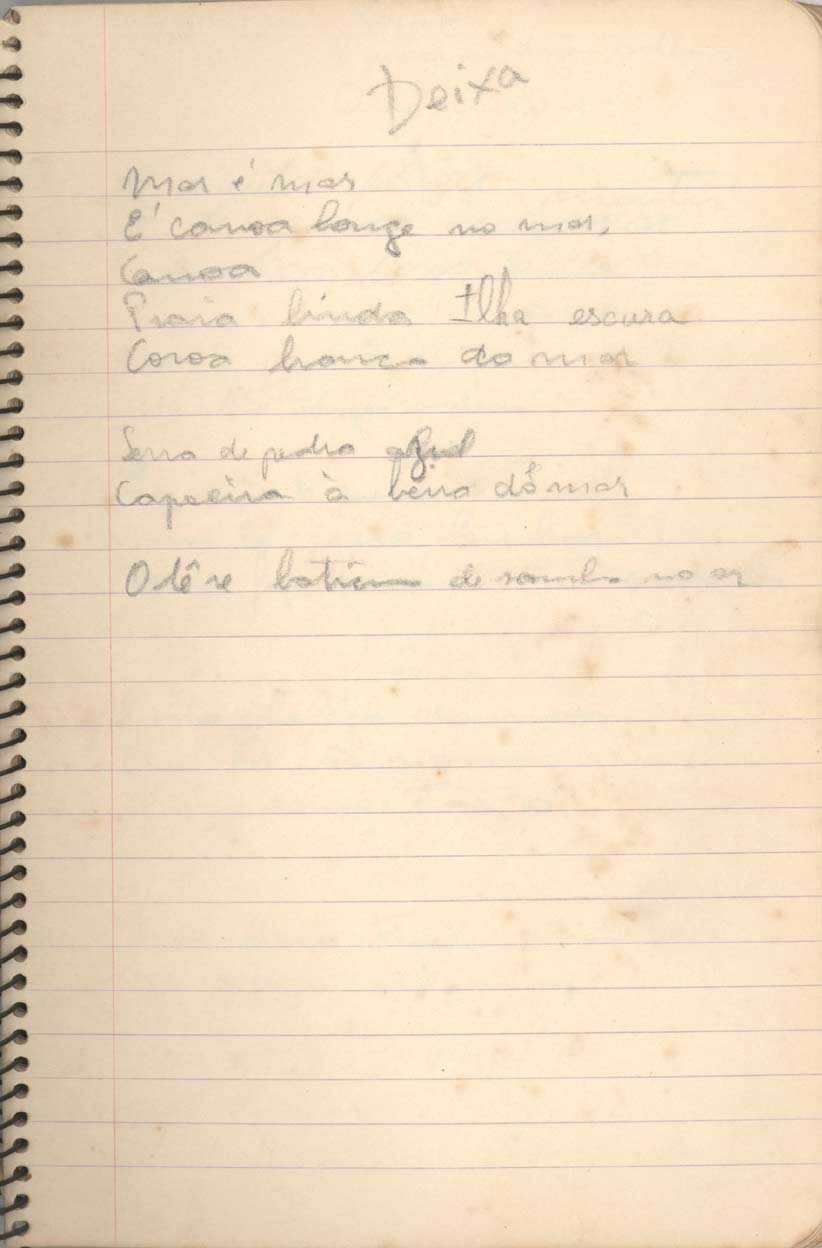 Deixa
Mar é mar
É canoa longe no mar,
Canoa
Praia linda Ilha escura
Coroa branca do mar
Serra de pedra azul
Capoeira à beira do mar
O lê re batida de samba no ar